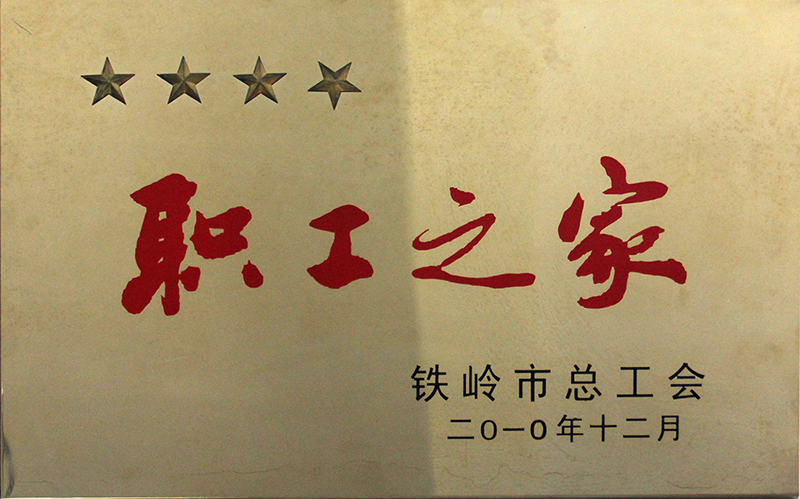 职工之家
铁岭市总工会
二0一0年十二月